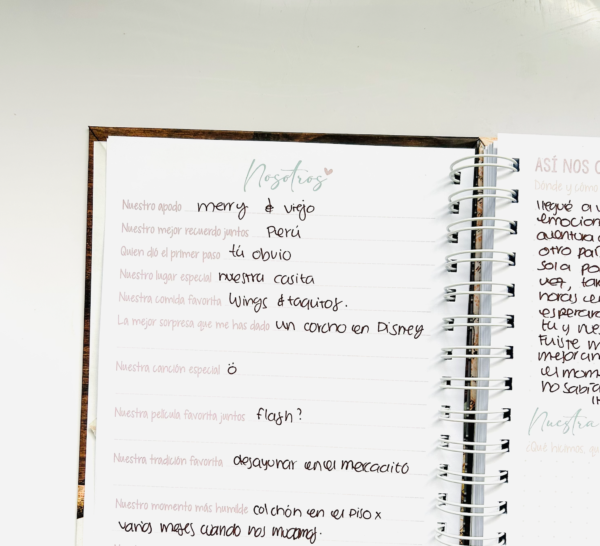 Nosotros
Nuestro apodo merry & viejo
Nuestro mejor recuerdo juntos Perú
Quien dió el primer paso tú obvio
Nuestro lugar especial nuestra casita
Nuestra comida favorita Wings & taquitos.
La mejor sorpresa que me has dado un corcho en Disney
Nuestra canción especial ö
Nuestra película favorita juntos flash?
Nuestra tradición favorita desayunar en el mercadito
Nuestro momento más humilde colchón en el piso x
varios meses cuando nos mudamos.
ASÍ NOS
Dónde y cómo
llegué a
emocion
aventura
otro paí
sola po
vez, tan
horas
esperar
tú y nu
Fuiste m
mejor
el mom
no sabía
Nuestra
¿Qué hicimos, qu